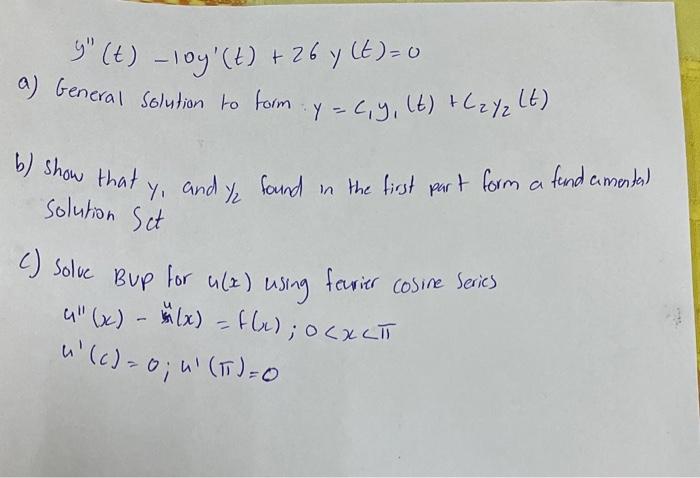 y''(t) - 10y'(t) + 26 y(t) = 0
a) General Solution to form y = C₁y₁(t) + C₂y₂(t)
b) Show that y₁ and y₂ found in the first part form a fundamental
Solution Set
c) Solve BVP for u(x) using fourier cosine series
u''(x) - u(x) = f(x) ; 0 < x < π
u'(c) = 0 ; u'(π) = 0